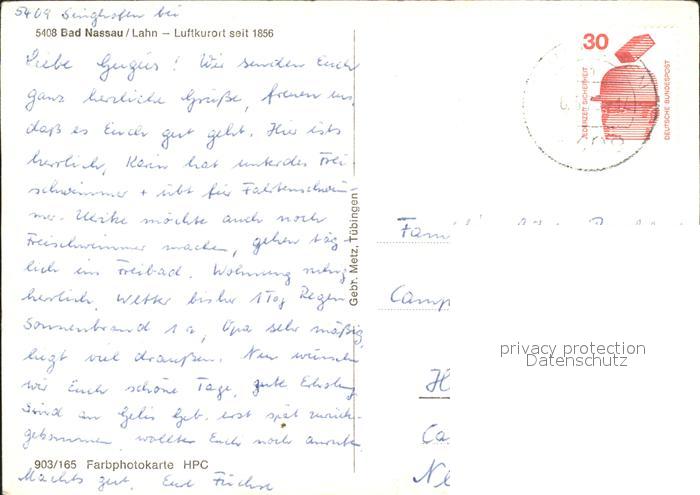 5409 Singhofen bei
5408 Bad Nassau/Lahn – Luftkurort seit 1856
Liebe ! Wir senden Euch
ganz herzliche Grüße, freuen uns,
daß es Euch gut geht. Hier ists
herrlich, Karin hat unterdes Frei
schwimmer + übt für Fahrtenschwim-
mer. Ulrike möchte auch noch
Freischwimmer machen, gehen täg-
lich ins Freibad. Wohnung ruhig
herrlich, Wetter bisher 1 Tag Regen
Sonnenbrand 1a, Opa sehr mäßig,
liegt viel draußen. Nun wünschen
wir Euch schöne Tage, gute Erholung
Sind an Geb. erst spät zurück-
gekommen, wollten Euch noch anrufen.
903/165 Farbphotokarte HPC
Machts gut. Eure Füchse
Gebr. Metz, Tübingen
30
JEDERZEIT SICHERHEIT
DEUTSCHE BUNDESPOST
Fam
Camp
H
Ca
privacy protection
Datenschutz